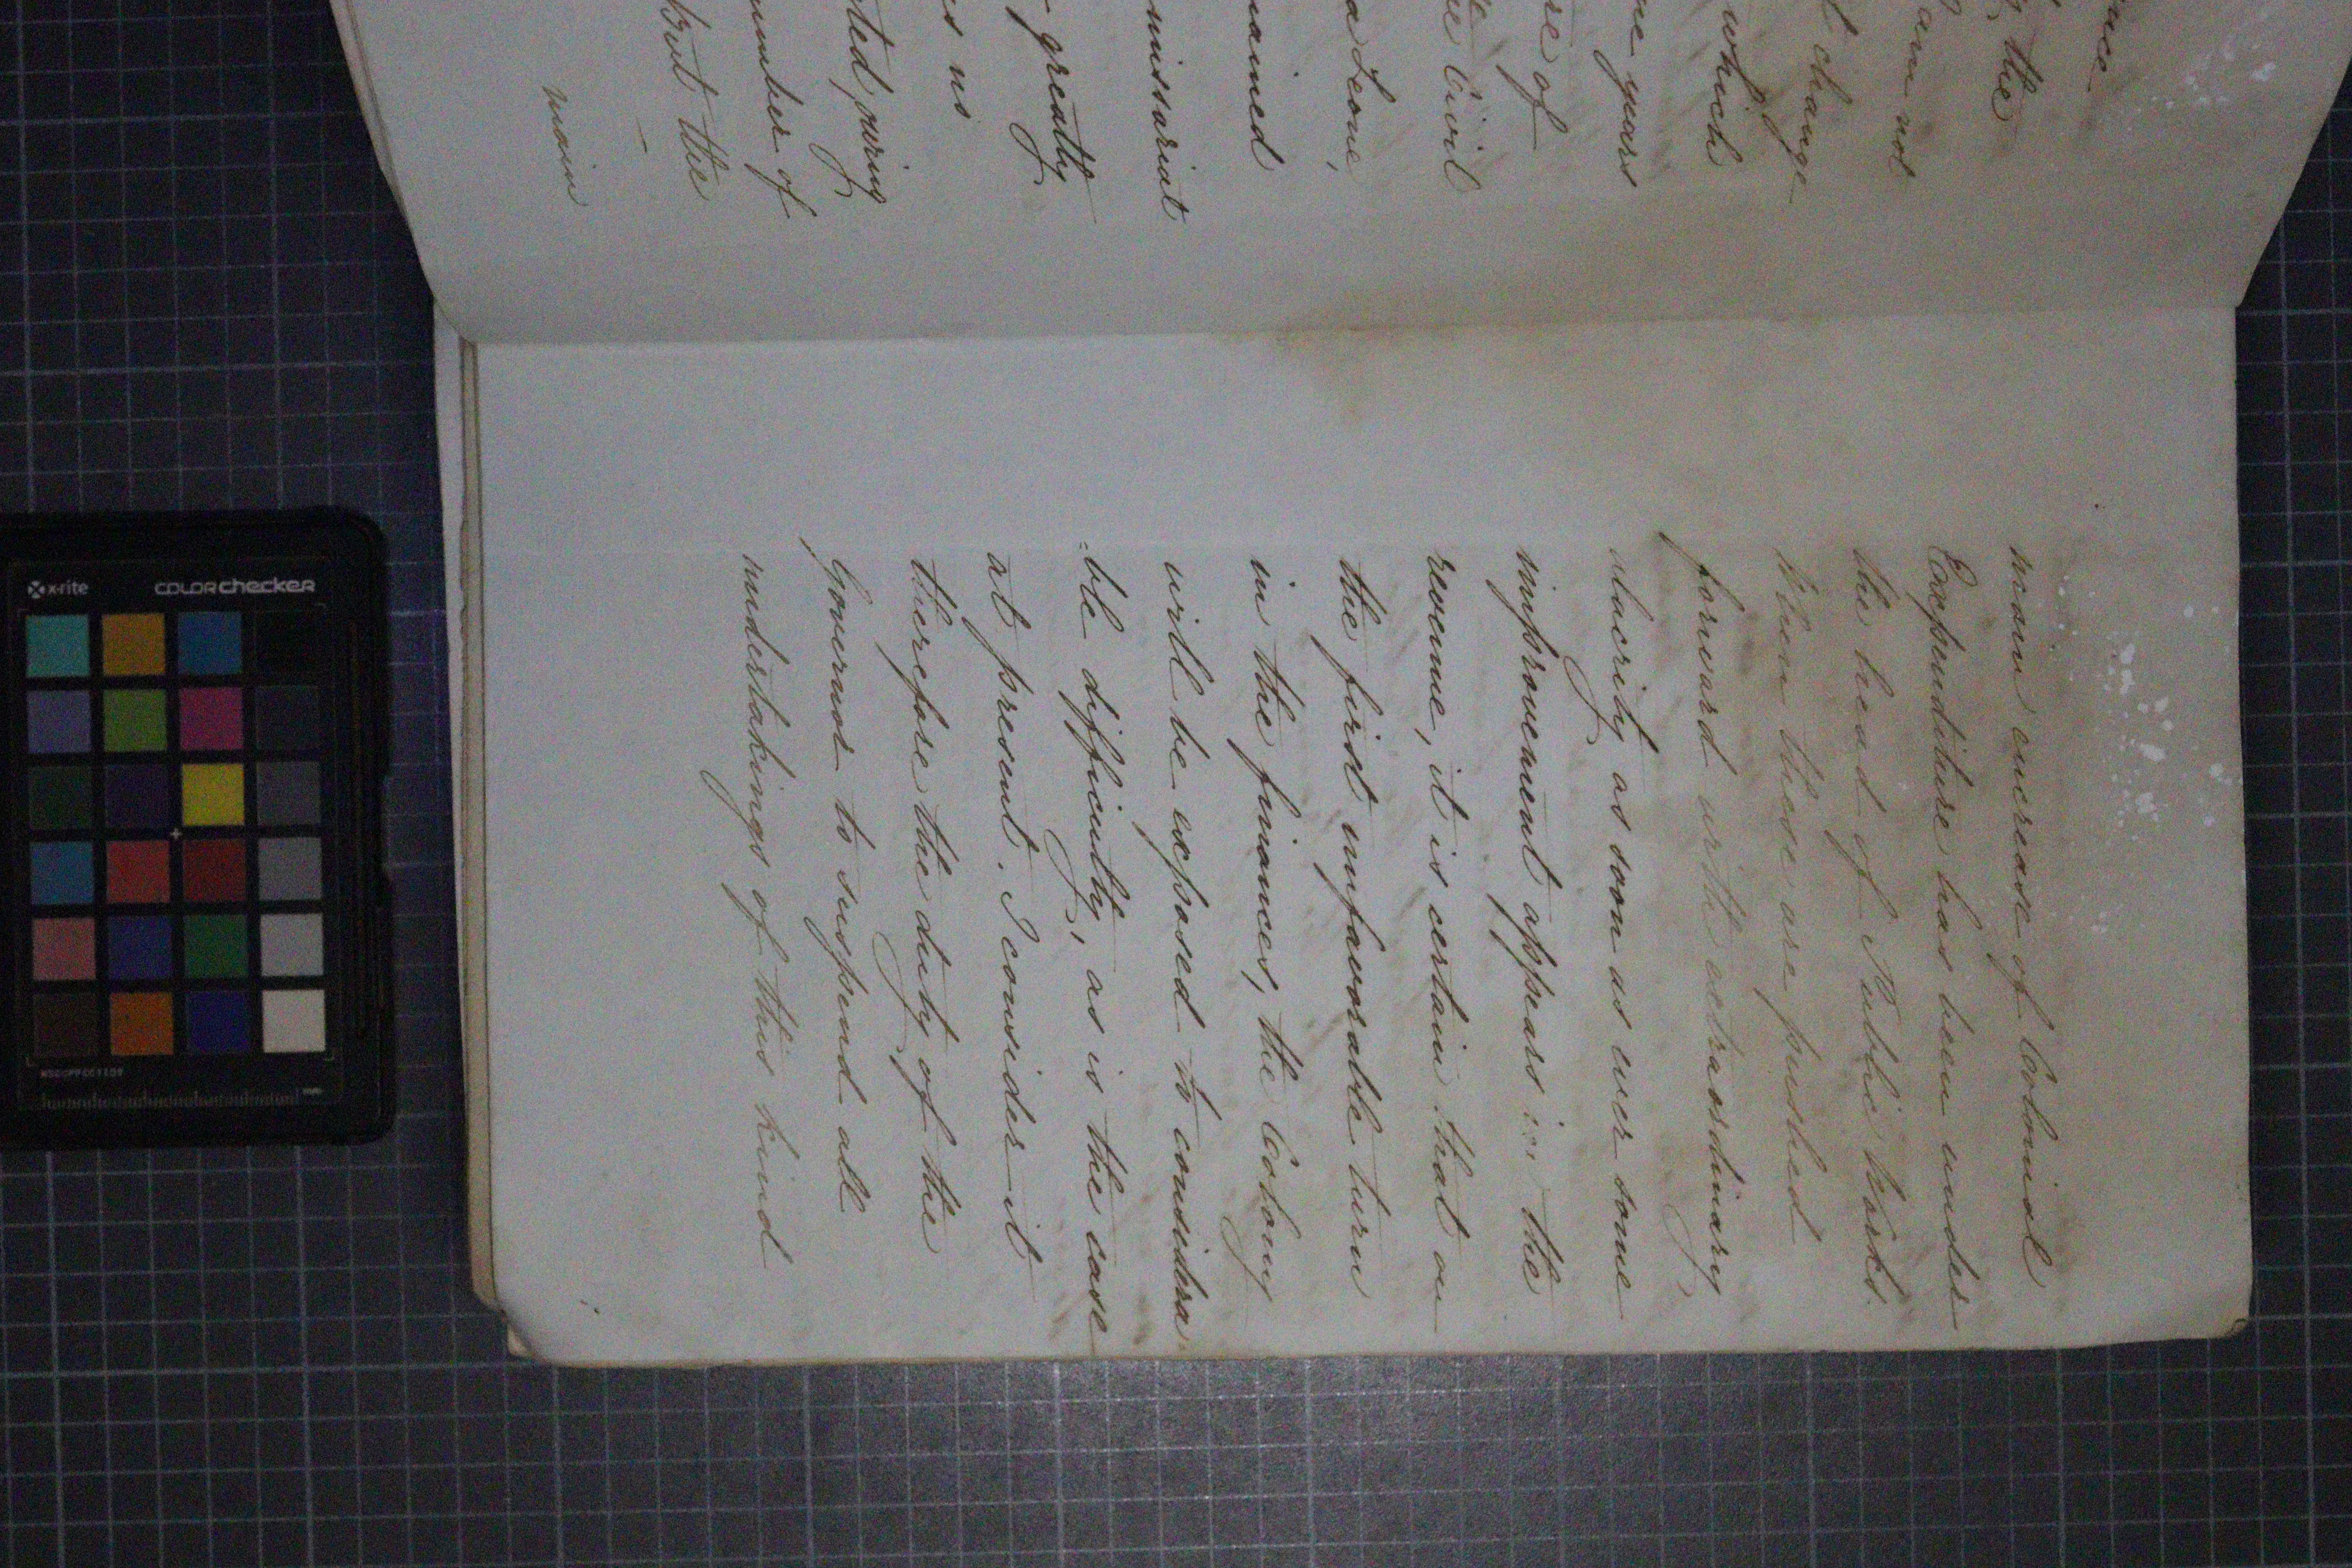 ance
the
am not
change
which
ne years
re of
e Civil
a Leone,
ained
missariat
greatly
es us
ted, (being
umber of
but the
–
main
main encrease of Colonial
Expenditure has been under
the head of Public Works.
When these are pushed
forward with extraordinary
alacrity as soon as ever some
improvement appears in the
revenue, it is certain that on
the first unfavorable turn
in the finances, the Colony
will be exposed to considera
:ble difficulty, as is the case
at present. I consider it
therefore the duty of the
Governor to suspend all
undertakings of this kind
x-rite
colorchecker